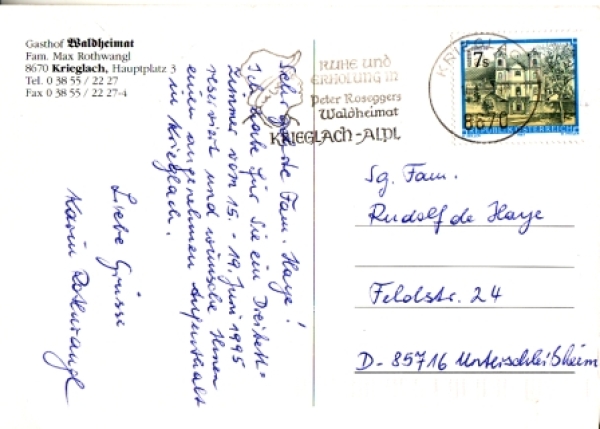 Gasthof Waldheimat
Fam. Max Rothwangl
8670 Krieglach, Hauptplatz 3
Tel. 0 38 55 / 22 27
Fax 0 38 55 / 22 27-4
Sehr geehrte Fam. Haye!
Ich habe für Sie ein Dreibett-
zimmer vom 15. - 19. Juni 1995
reserviert und wünsche Ihnen
einen angenehmen Aufenthalt
in Krieglach.
Liebe Grüsse
Karin Rothwangl
RUHE und
ERHOLUNG IN
Peter Roseggers
Waldheimat
KRIEGLACH-ALPL
8670
7 S
REPUBLIK ÖSTERREICH
Sg. Fam.
Rudolf de Haye
Feldstr. 24
D-85716 Unterschleißheim